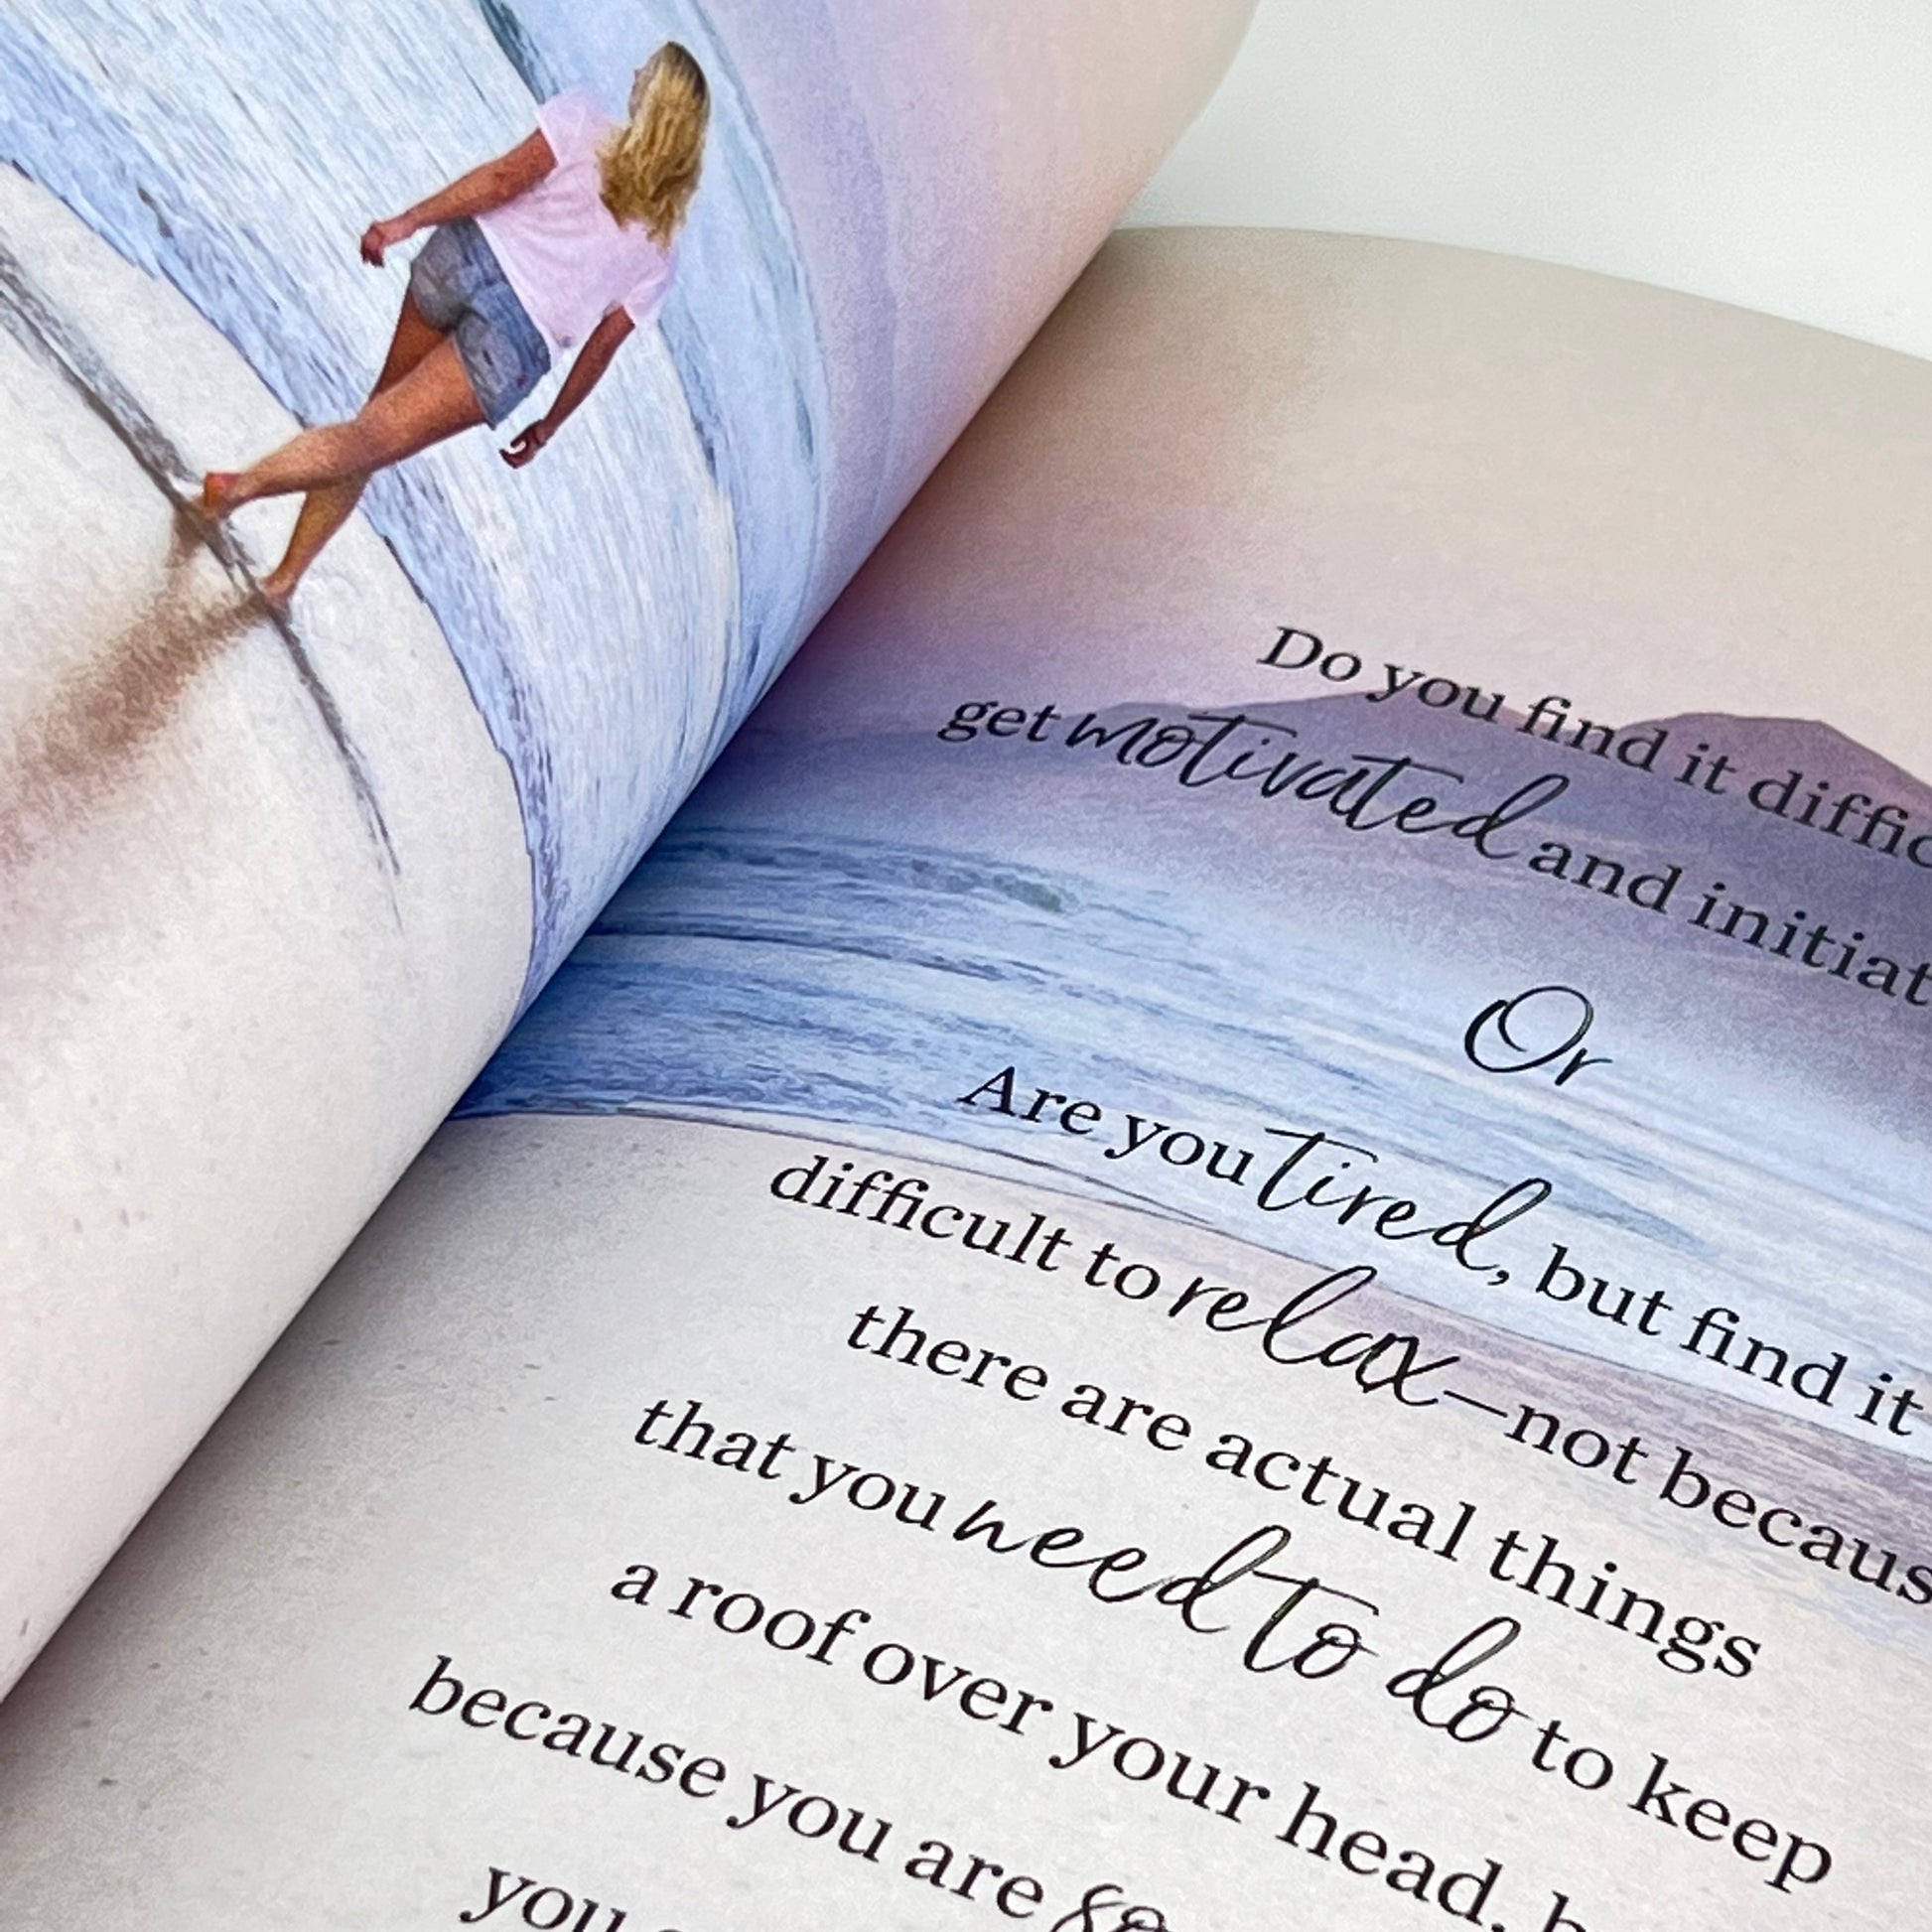 Do you find it
get motivated and
Or
Are you tired, but find it
difficult to relax—not
there are actual things
that you need to do to keep
a roof over your head,
because you are
you